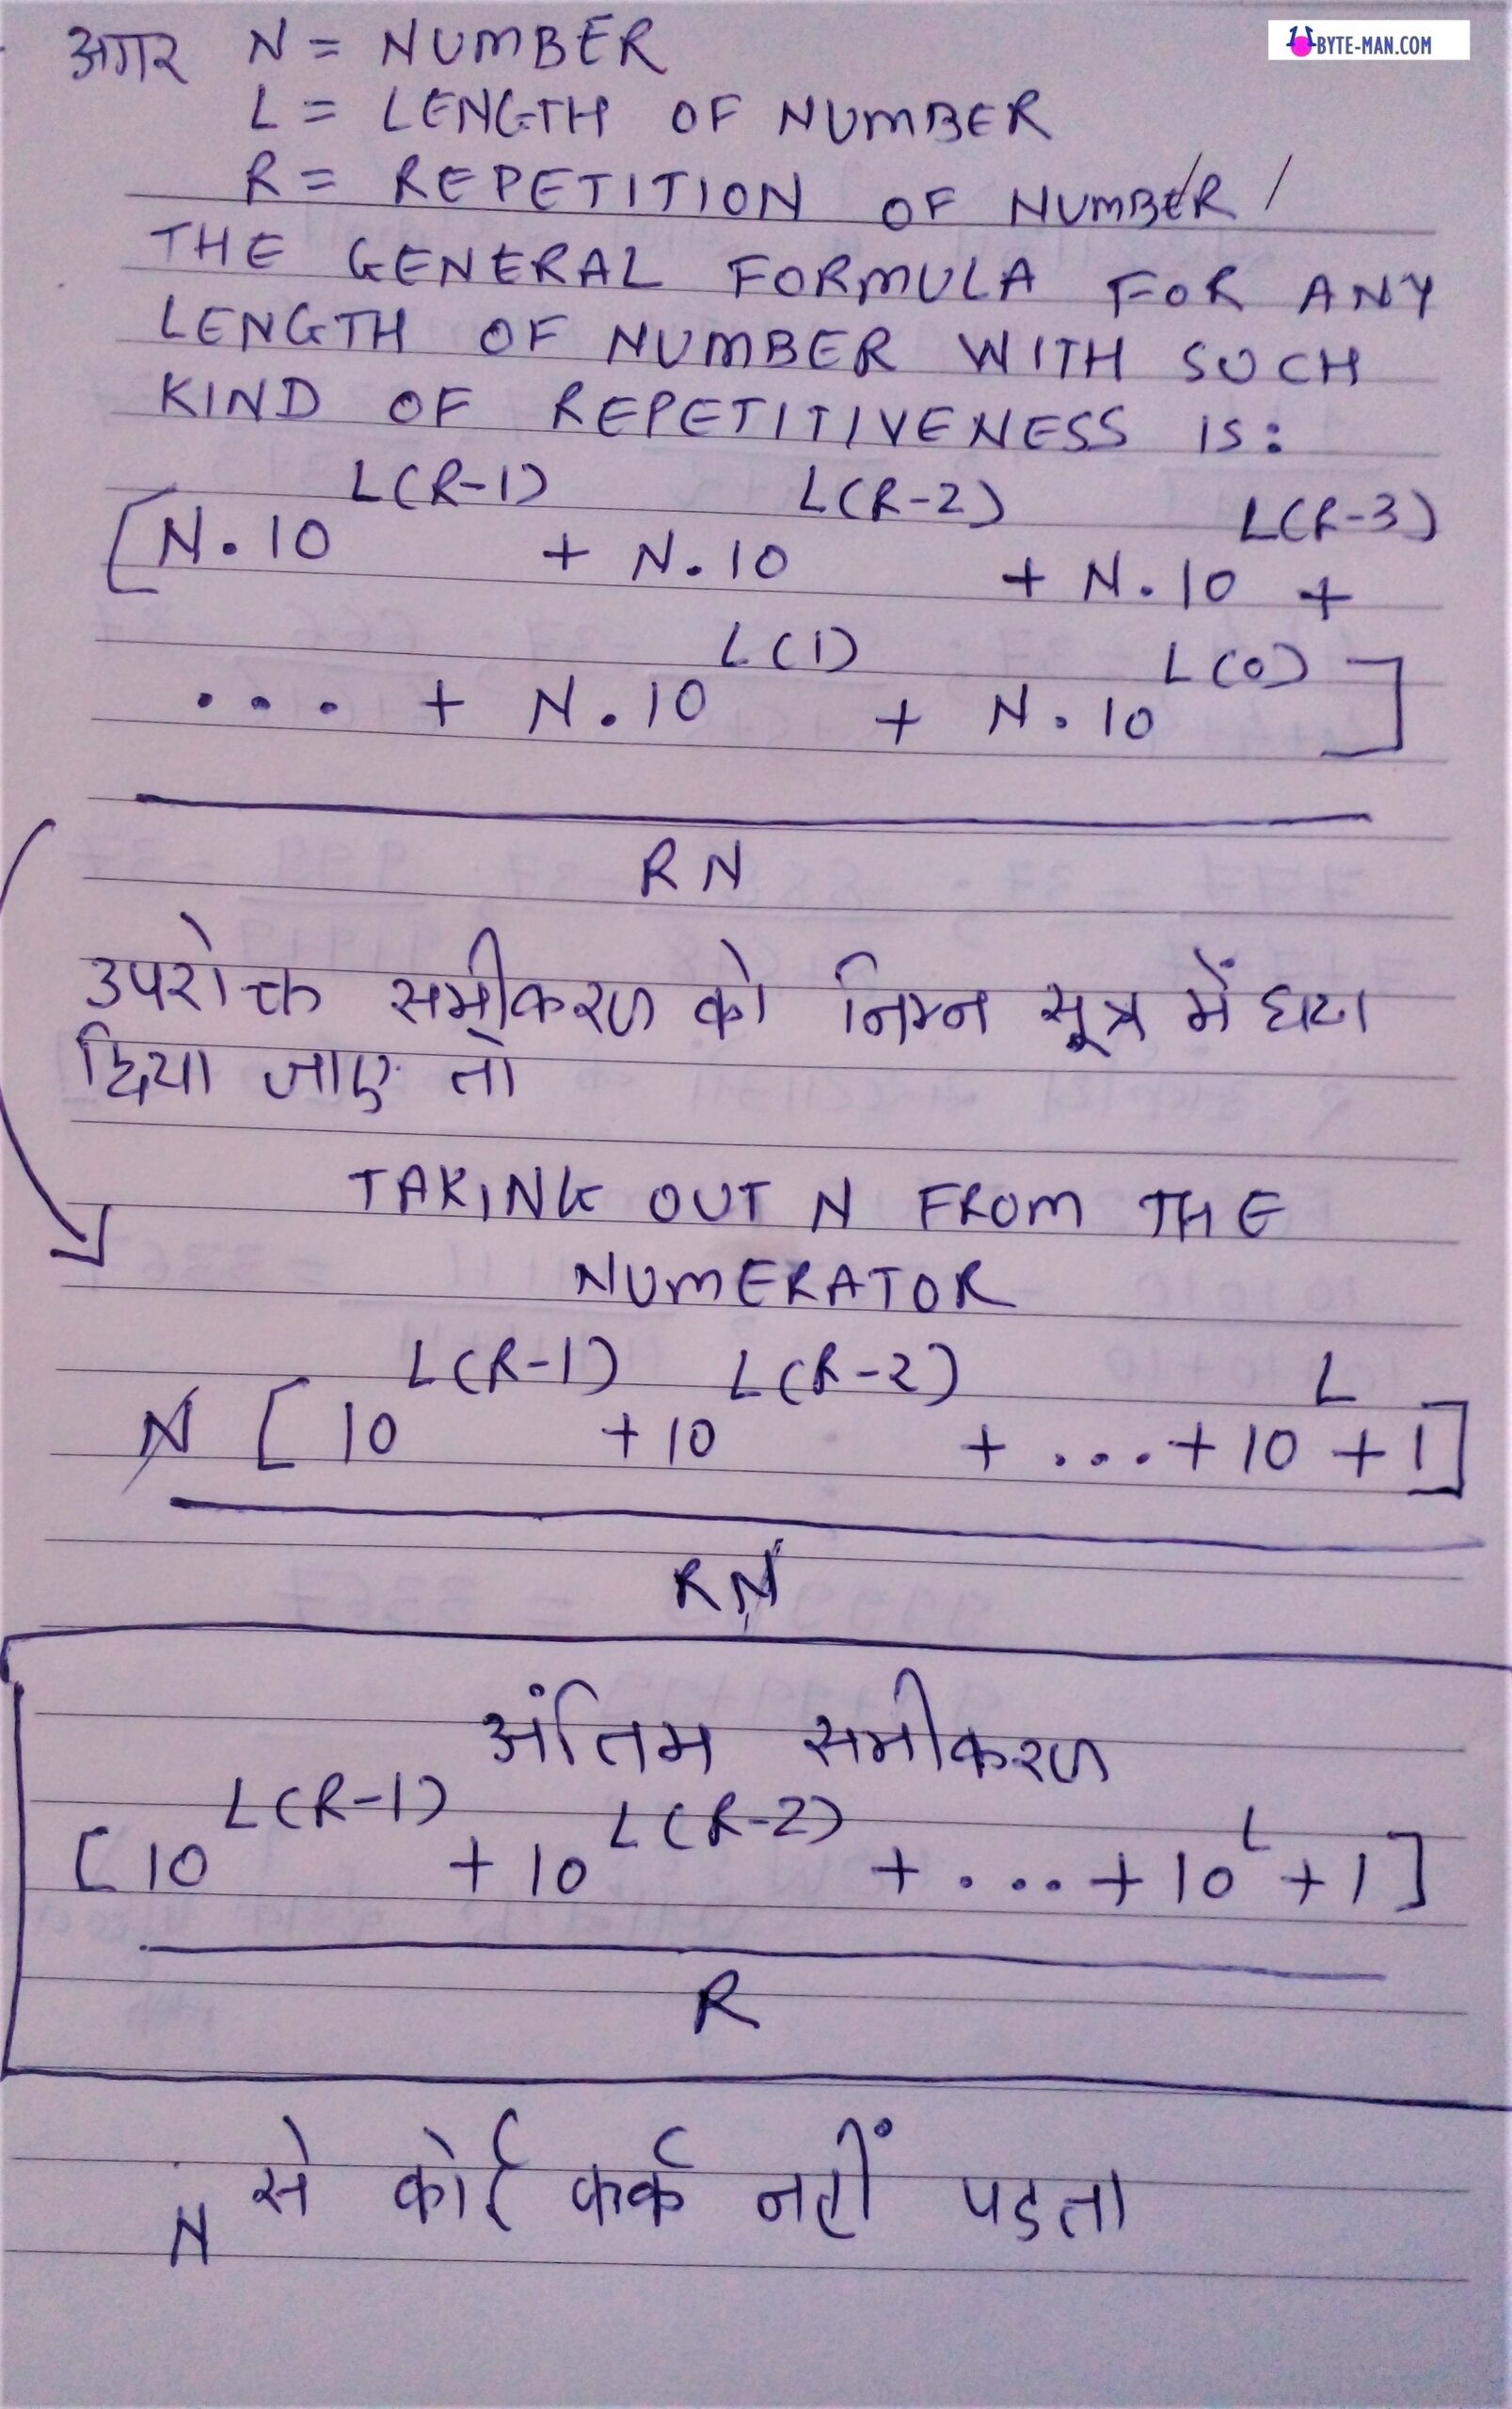 BYTE-MAN.COM
अगर N = NUMBER
L = LENGTH OF NUMBER
R = REPETITION OF NUMBER /
THE GENERAL FORMULA FOR ANY
LENGTH OF NUMBER WITH SUCH
KIND OF REPETITIVENESS IS:
[N.10^L(R-1) + N.10^L(R-2) + N.10^L(R-3) +
.... + N.10^L(1) + N.10^L(0)]
RN
उपरोक्त समीकरण को निम्न सूत्र में घटा
दिया जाए तो
TAKING OUT N FROM THE
NUMERATOR
N [10^L(R-1) + 10^L(R-2) + ....+ 10^L + 1]
RN
अंतिम समीकरण
[10^L(R-1) + 10^L(R-2) + ....+ 10^L + 1]
R
N से कोई फर्क नहीं पडता